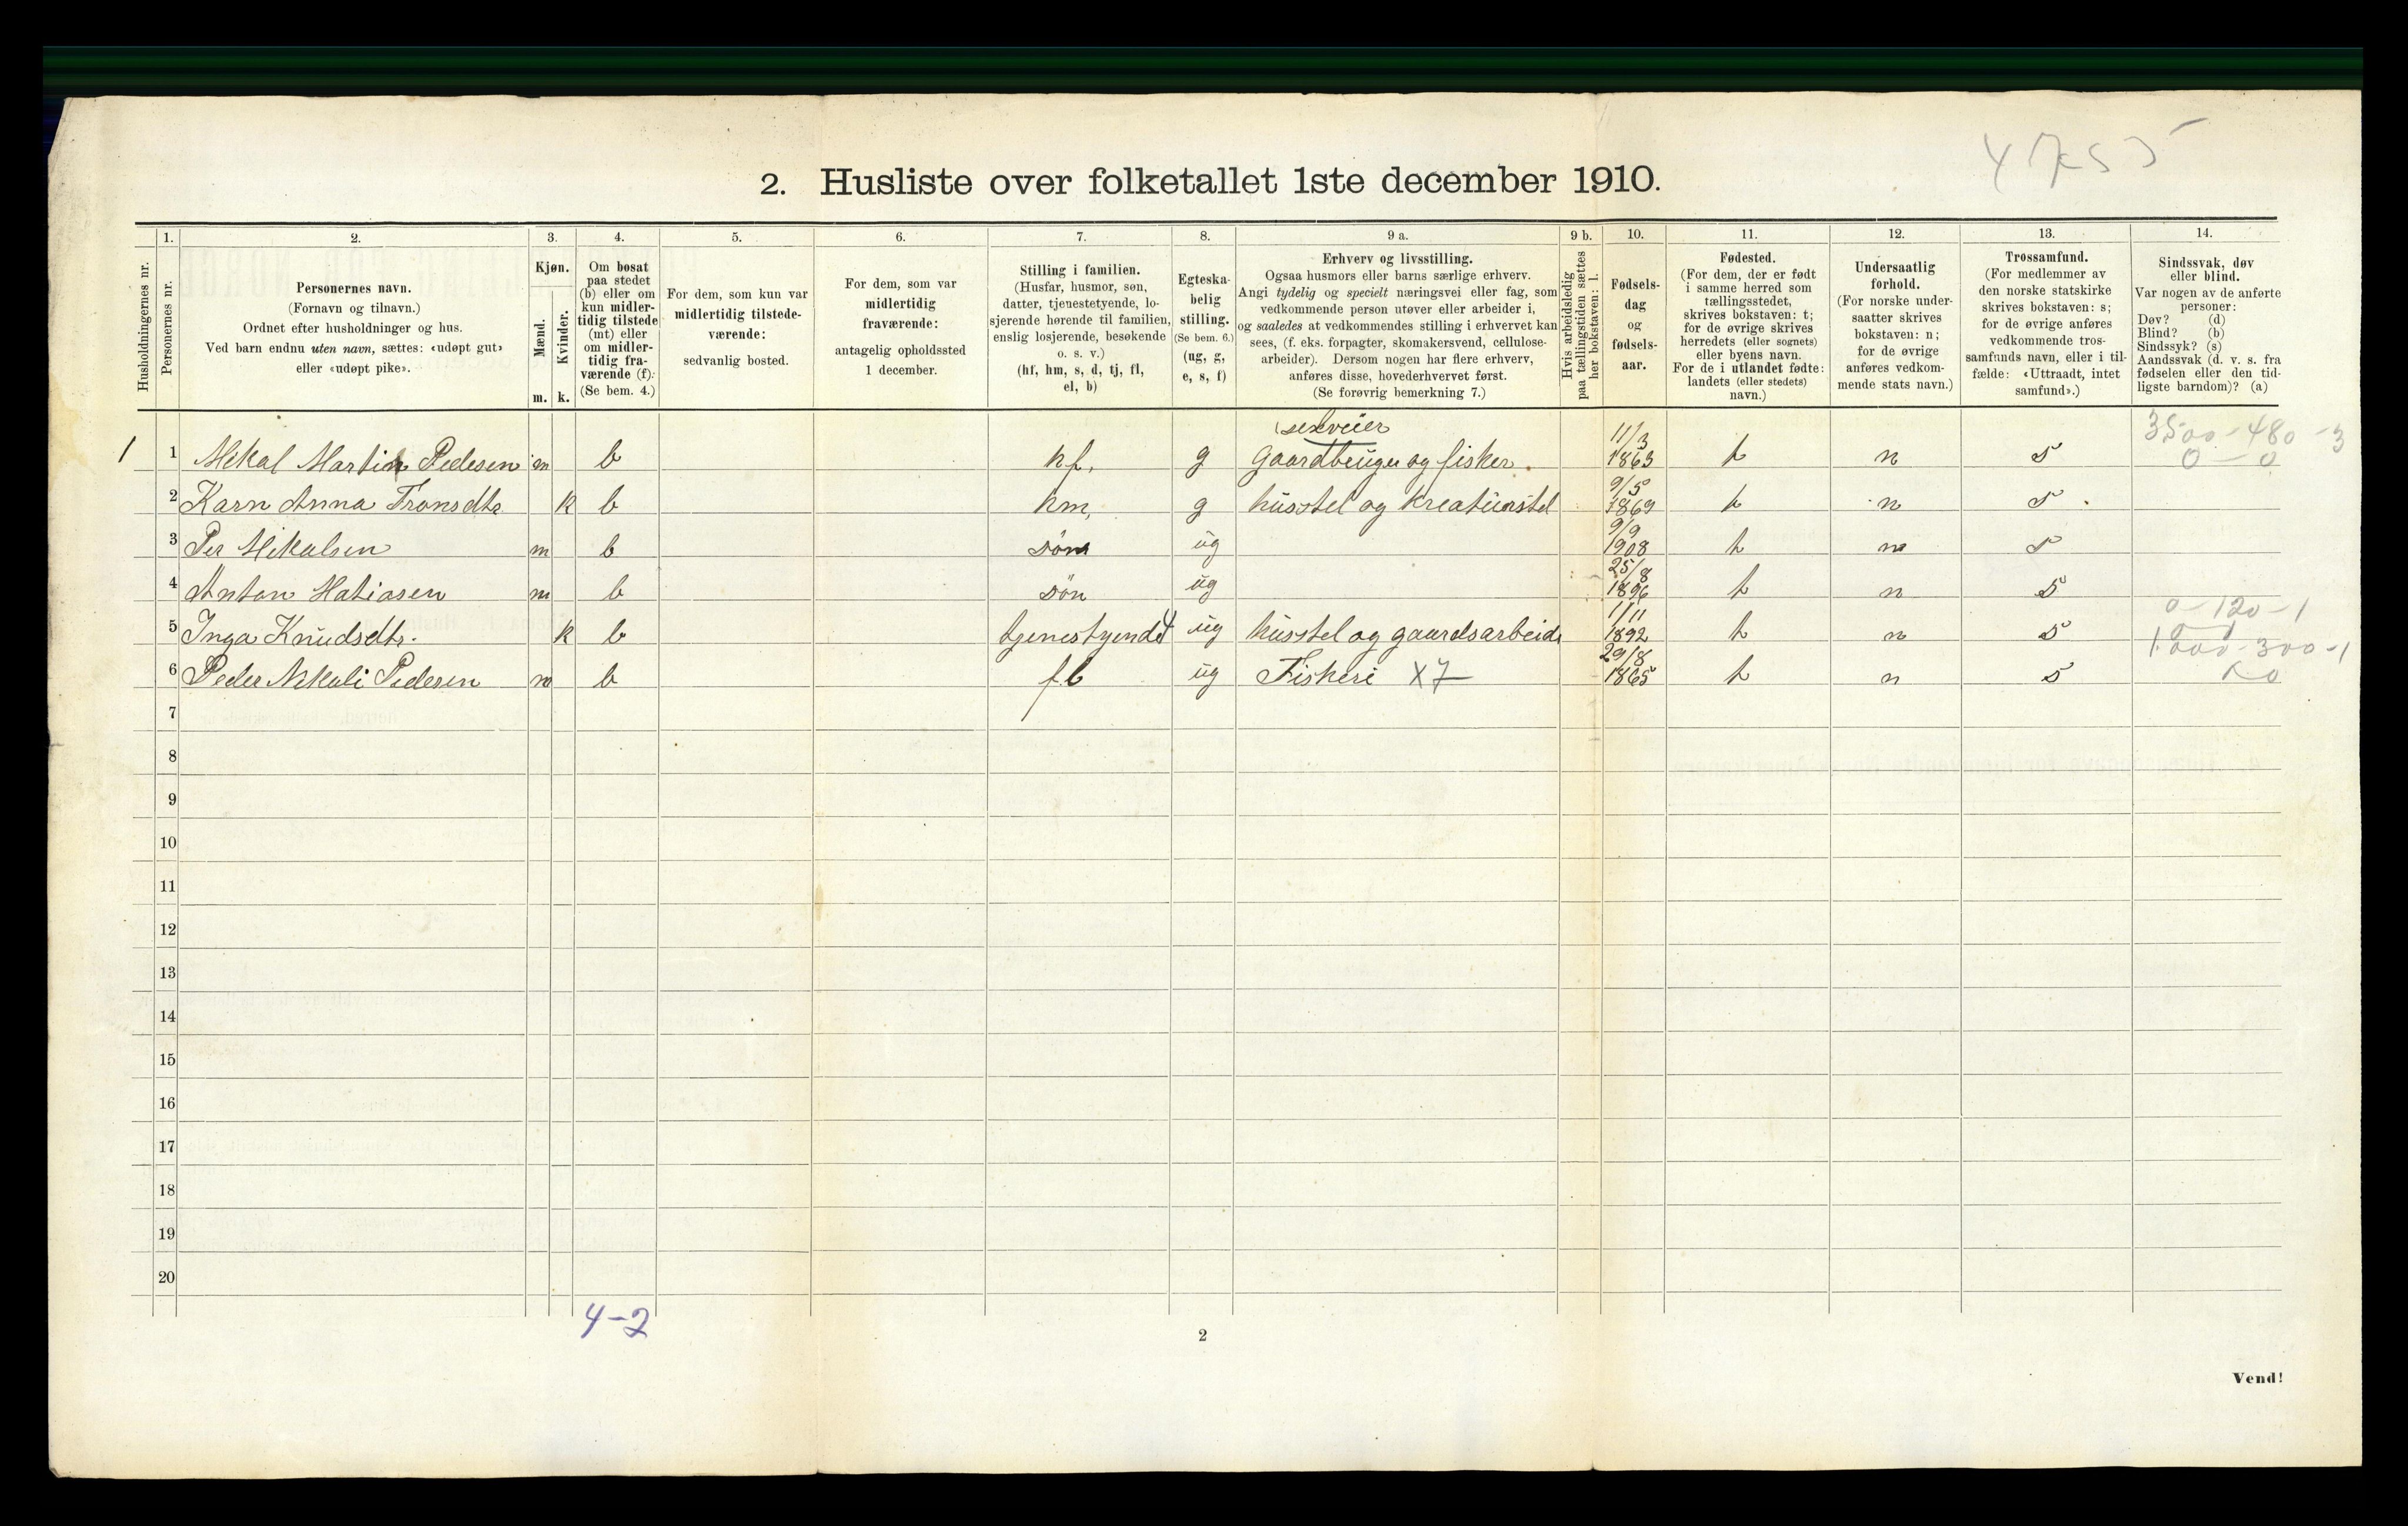 2. Husliste over folketallet 1ste december 1910.
1. 2. 3. 4. 5. 6. 7. 8. 9 a. 9 b. 10. 11. 12. 13. 14.
Husholdningernes nr.
Personernes nr.
Personernes navn.
(Fornavn og tilnavn.)
Ordnet efter husholdninger og hus.
Ved barn endnu uten navn, sættes: «udøpt gut»
eller «udøpt pike».
Kjøn.
Mænd.
Kvinder.
m. k.
Om bosat
paa stedet
(b) eller om
kun midler-
tidig tilstede
(mt) eller
om midler-
tidig fra-
værende (f).
(Se bem. 4.)
For dem, som kun var
midlertidig tilstede-
værende:
sedvanlig bosted.
For dem, som var
midlertidig
fraværende:
antagelig opholdssted
1 december.
Stilling i familien.
(Husfar, husmor, søn,
datter, tjenestetyende, lo-
sjerende hørende til familien,
enslig losjerende, besøkende
o. s. v.)
(hf, hm, s, d, tj, fl,
el, b)
Egteska-
belig
stilling.
(Se bem. 6.)
(ug, g,
e, s, f)
Erhverv og livsstilling.
Ogsaa husmors eller barns særlige erhverv.
Angi tydelig og specielt næringsvei eller fag, som
vedkommende person utøver eller arbeider i,
og saaledes at vedkommendes stilling i erhvervet kan
sees, (f. eks. forpagter, skomakersvend, cellulose-
arbeider). Dersom nogen har flere erhverv,
anføres disse, hovederhvervet først.
(Se forøvrig bemerkning 7.)
Hvis arbeidsledig
paa tællingstiden sættes
her bokstaven: l.
Fødsels-
dag
og
fødsels-
aar.
Fødested.
(For dem, der er født
i samme herred som
tællingsstedet,
skrives bokstaven: t;
for de øvrige skrives
herredets (eller sognets)
eller byens navn.
For de i utlandet fødte:
landets (eller stedets)
navn.)
Undersaatlig
forhold.
(For norske under-
saatter skrives
bokstaven: n;
for de øvrige
anføres vedkom-
mende stats navn.)
Trossamfund.
(For medlemmer av
den norske statskirke
skrives bokstaven: s;
for de øvrige anføres
vedkommende tros-
samfunds navn, eller i til-
fælde: «Uttraadt, intet
samfund».)
Sindssvak, døv
eller blind.
Var nogen av de anførte
personer:
Døv? (d)
Blind? (b)
Sindssyk? (s)
Aandssvak (d. v. s. fra
fødselen eller den tid-
ligste barndom)? (a)
selveier 11/3 3500-480-3
1 1 Mikal Martin Pedesen m b hf. g Gaardbruger og fisker. 1863 t n s 0-0
9/5
2 Karn Anna Tronsdtr k b hm, g husstel og kreaturstel 1869 t n s
9/9
3 Per Mikalsen m b søn ug 1908 t n s
25/8
4 Anton Matiasen m b søn ug 1896 t n s
1/11 0-120-1
5 Inga Knudsdtr. k b ug husstel og gaardsarbeide 1892 t n s
29/8 1.000-300-1
6 Peder Nikoli Pedersen m b fl ug Fiskeri X7 1865 t n s
7
8
9
10
11
12
13
14
15
16
17
18
19
20
4-2
2
Vend!